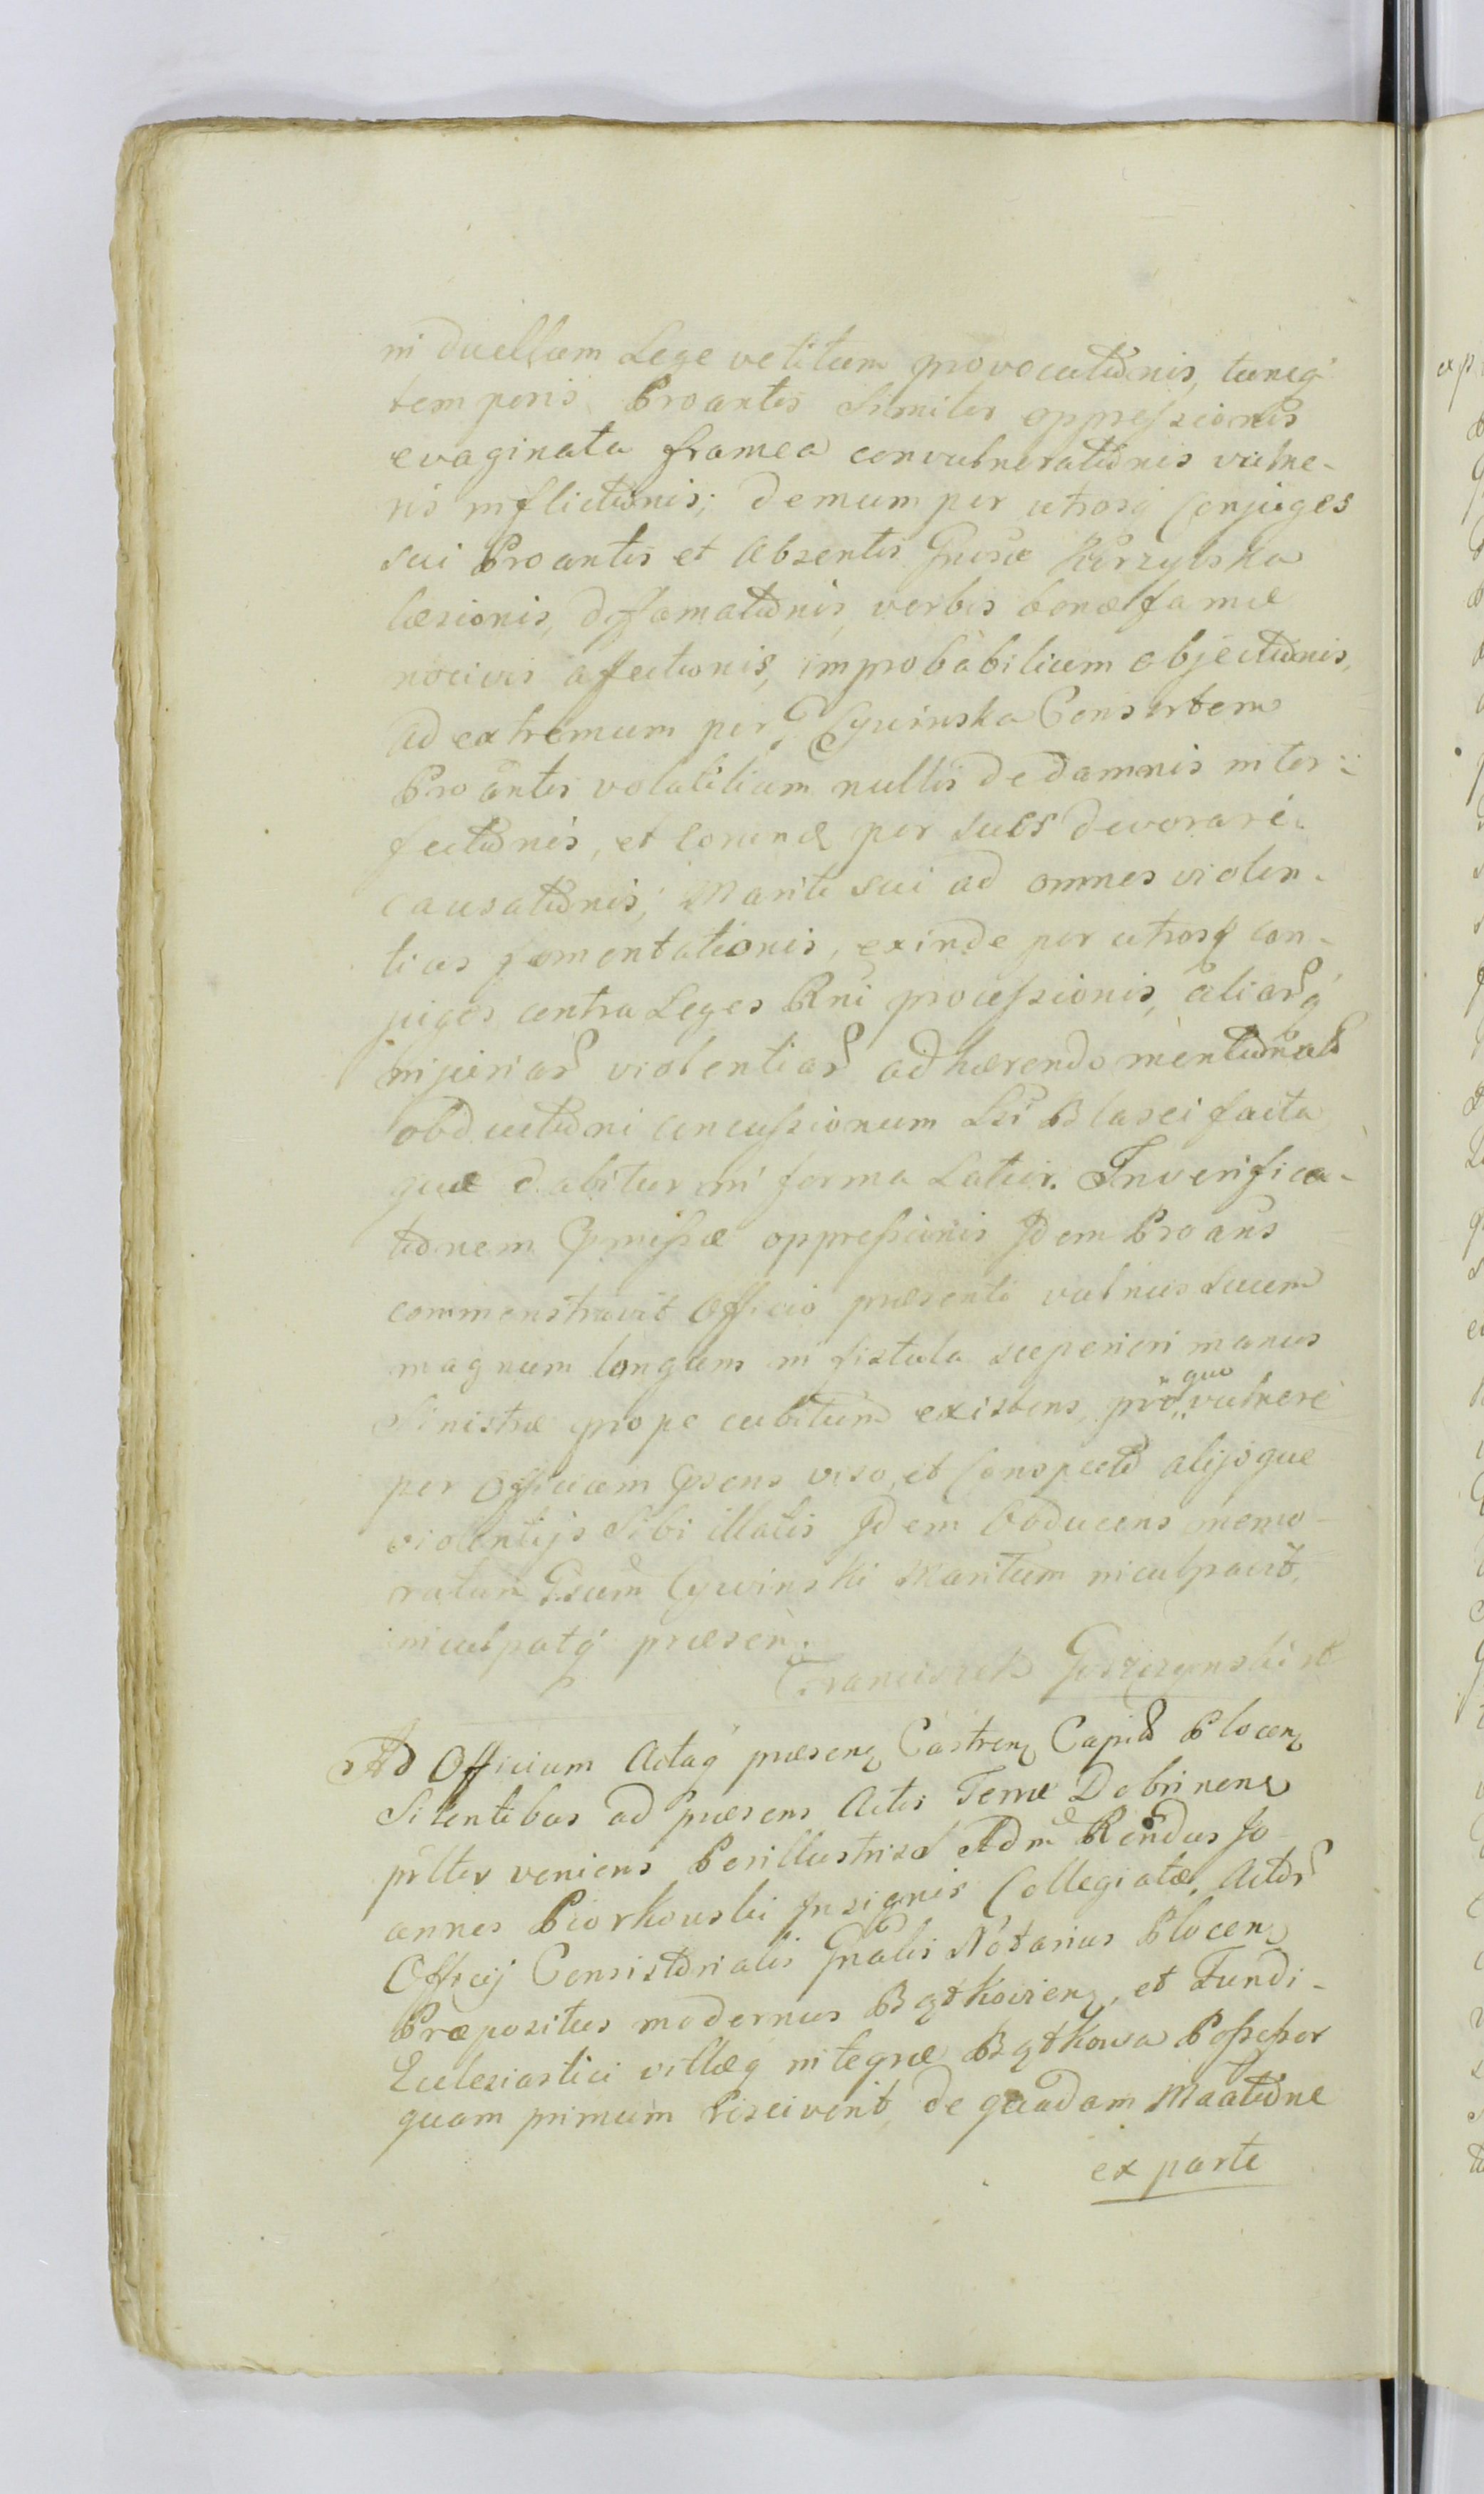 in duellum Lege vetitum provocationis, tuncq́
temporis Proantis similiter oppressionis
evaginata framea convulnerationis vulne-
ris inflictionis; demum per utrosq́ Conjuges
sui Proantis et absentis Gnosæ
læsionis, diffamationis, verbis bonæ famæ
nocivis affectionis, improbabilium objectionis,
ad extremum per G Cywinska Consortem
Proantis volatilium nullis de damnis inter-
fectionis, et eorund per sues devorari
causationis; Mariti sui ad omnes violen-
tias fomentationis, exinde per utrosq́ con-
juges contra Leges Rni processionis, aliarq́
injuriar violentiar adhærendo mentionat
obductioni concussionum Lsi Blasei facta
quæ dabitur in forma Latior. In verifica-
tionem pmissæ oppressionis Idem Proans
commonstravit Officio præsenti vulnus suum
magnum longum in fistula superiori manus
sinistræ prope cubitum existens, pro quo vulnere
per Officium psens viso, et Conspecto alijsque
violentijs sibi illatis Idem Obducens memo-
ratum Gsum Cywinski Maritum inculpavit,
inculpatq́ præsen.
Franciszek Goszczynski
Ad Officium Actaq́ præsenz Castrenz Capitl Plocenz
Silentibus ad præsens Actis Terræ Dobrinens
psltter veniens Perillustris et Adm Rendus Jo-
annes Piorkowski Insignis Collegiatæ, Actor
Officij Consistorialis Gnalis Notarius Plocenz
Præpositus modernus Bądkovienz, et Fundi-
Ecclesiastici villæq́ integræ Bądkowa Possessor
quam primum resciverit, de quadam Maatione
ex parte